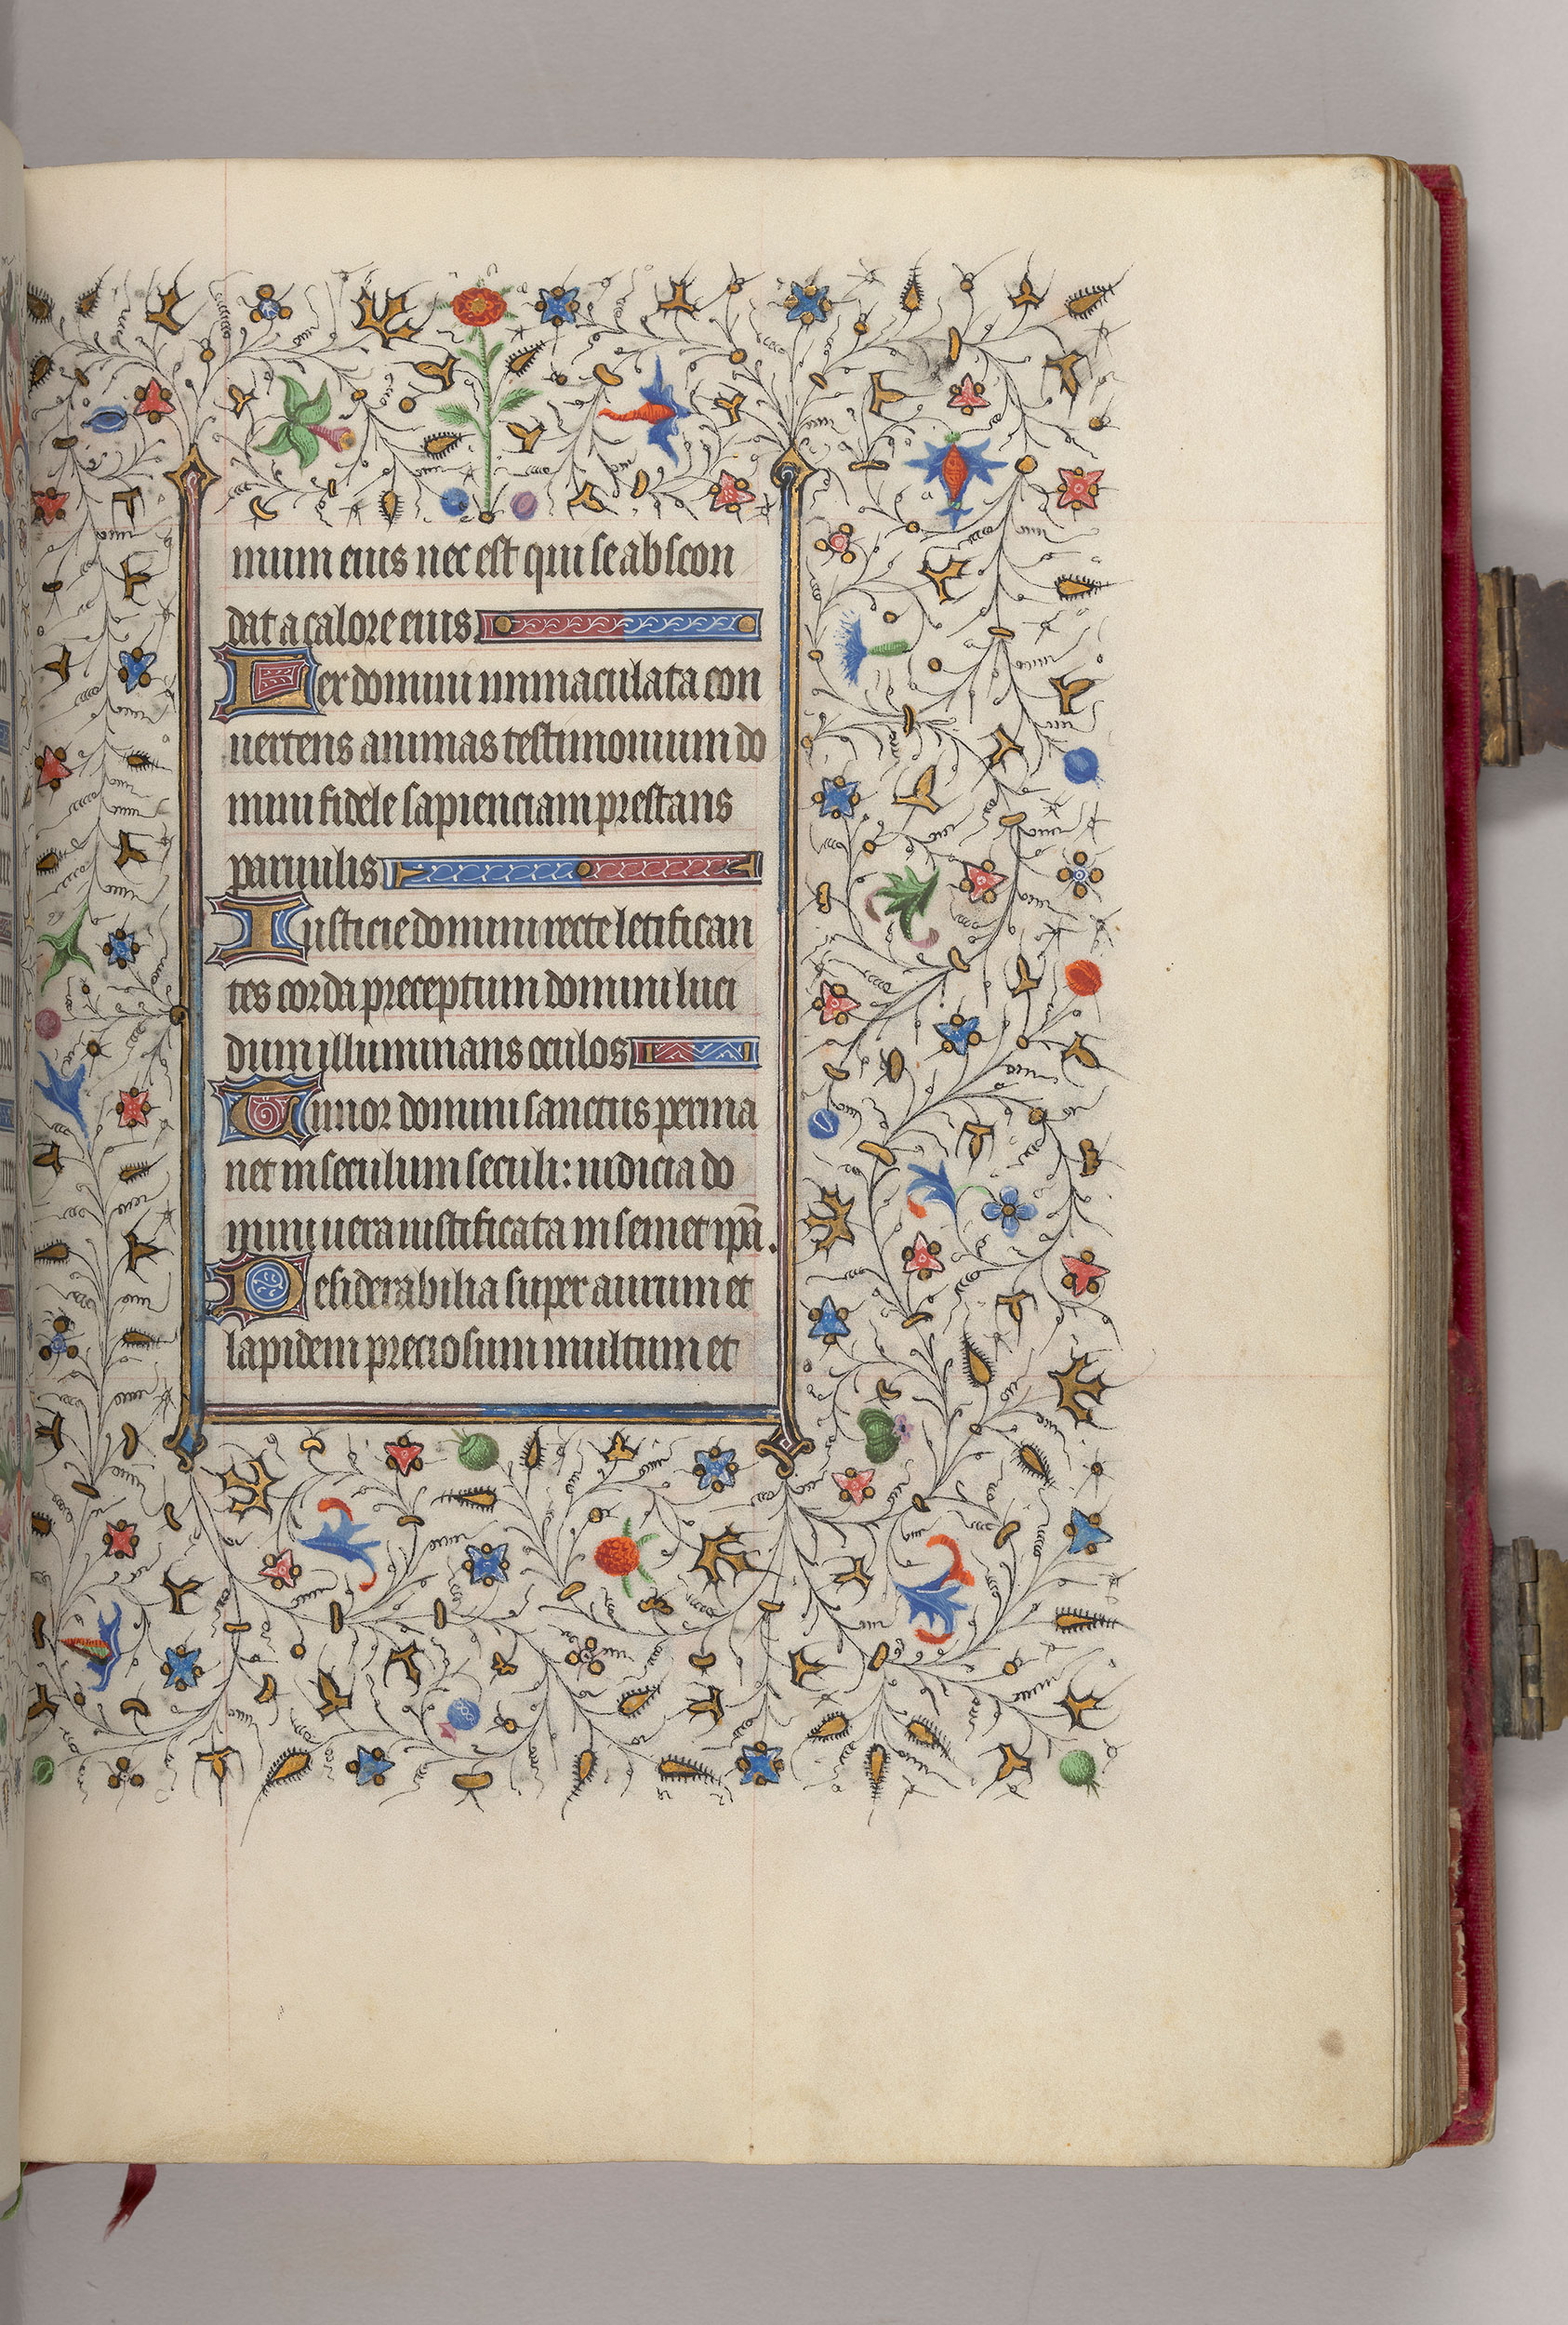 mum eius nec est qui se abscon
dat a calore eius.
Lex domini inmaculata con
uertens animas testimonium do
mini fidele sapienciam prestans
paruulis
Iusticie domini recte letifican
tes corda preceptum domini luci
dum illuminans oculos
Timor domini sanctus perma
net in seculum seculi: iudicia do
mini uera iustificata in semet ip̄a.
Desiderabilia super aurum et
lapidem preciosum multum et